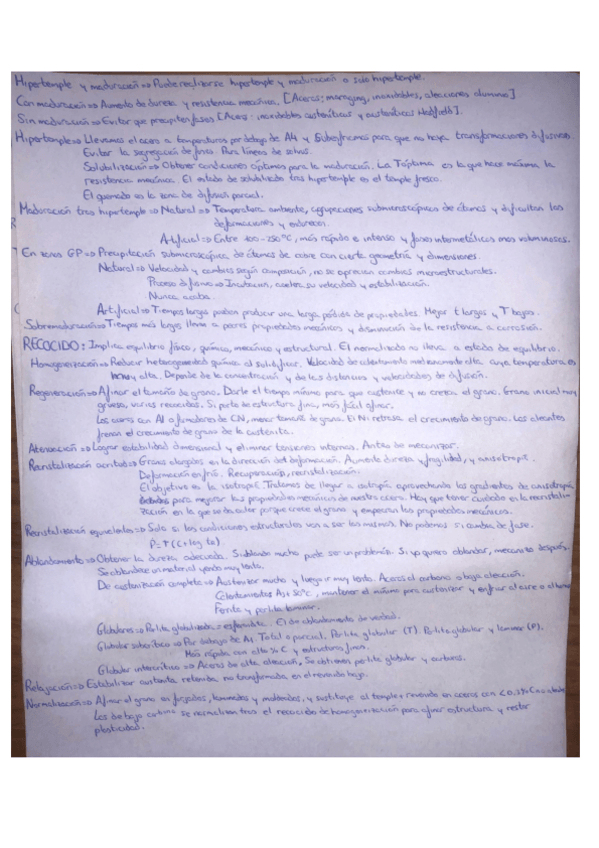 Hipertemple y maduración => Puede realizarse hipertemple y maduración o solo hipertemple.
Con maduración => Aumento de dureza y resistencia mecánica. [Aceros: maraging, inoxidables, aleaciones aluminio]
Sin maduración => Evitar que precipiten fases [Aceros: inoxidables austeníticos y austeníticos Hadfield].
Hipertemple => Llevamos el acero a temperaturas por debajo de A4 y subenfriamos para que no haya transformaciones difusivas
Evitar la segregación de fases. Para líneas de solvus.
Solubilización => Obtener condiciones óptimas para la maduración. La Tóptima es la que hace máxima la
resistencia mecánica. El estado de solubilizado tras hipertemple es el temple fresco.
El quemado es la zona de difusión parcial.
Maduración tras hipertemple => Natural => Temperatura ambiente, agrupaciones submicroscópicas de átomos y dificultan las
deformaciones y endurece.
Artificial => Entre 100-250ºC, más rápido e intenso y fases intermetálicas más voluminosas.
En zonas GP => Precipitación submicroscópica de átomos de cobre con cierta geometría y dimensiones.
Natural => Velocidad y cambios según composición, no se aprecian cambios microestructurales.
Proceso difusivo => Incubación, acelera su velocidad y estabilización.
Nunca acaba.
Artificial => Tiempos largos pueden producir una larga pérdida de propiedades. Mejor t largos y T bajas.
Sobremaduración => Tiempos más largos lleva a peores propiedades mecánicas y disminución de la resistencia a corrosión.
RECOCIDO: Implica equilibrio físico, químico, mecánico y estructural. El normalizado no lleva a estado de equilibrio.
Homogeneización => Reducir heterogeneidad química al solidificar. Velocidad de calentamiento medianamente alta cuya temperatura es
muy alta. Depende de la concentración y de las distancias y velocidades de difusión.
Regeneración => Afinar el tamaño de grano. Darle el tiempo mínimo para que austenite y no crezca el grano. Grano inicial muy
grueso, varios recocidos. Si parte de estructura fina, más fácil afinar.
Los aceros con Al o formadores de CN, menor tamaño de grano. El Ni retrasa el crecimiento de grano. Los aleantes
frenan el crecimiento de grano de la austenita.
Atenuación => Lograr estabilidad dimensional y eliminar tensiones internas. Antes de mecanizar.
Recristalización contra acritud => Granos alargados en la dirección de deformación. Aumenta dureza y fragilidad, y anisotropía.
Deformación en frío. Recuperación, recristalización.
El objetivo es la isotropía. Tratamos de llegar a isotropía aprovechando los gradientes de anisotropía
para mejorar las propiedades mecánicas de nuestro acero. Hay que tener cuidado en la recristali-
zación en la que se da calor porque crece el grano y empeoran las propiedades mecánicas.
Recristalización equivalentes => Solo si las condiciones estructurales van a ser las mismas. No podemos si cambia de fase.
P = T (C + log ta)
Ablandamiento => Obtener la dureza adecuada. Si ablando mucho puede ser un problema. Si yo quiero ablandar, mecanizo después.
Se ablandece un material yendo muy lento.
De austenización completa => Austenizar mucho y luego ir muy lento. Aceros al carbono o baja aleación.
Calentamientos A3 + 50ºC, mantener el mínimo para austenizar y enfriar al aire o al horno
Ferrita y perlita laminar.
Globulares => Perlita globalizada = esferoidita. El de ablandamiento de verdad.
Globular subcrítico => Por debajo de A1. Total o parcial. Perlita globular (T). Perlita globular y laminar (P).
Más rápida con alto % C y estructura fina.
Globular intercrítico => Aceros de alta aleación. Se obtienen perlita globular y carburos.
Relajación => Estabilizar austenita retenida no transformada en el revenido bajo.
Normalización => Afinar el grano en forjados, laminados y moldeados, y sustituye al temple + revenido en aceros con
Los de bajo carbono se normalizan tras el recocido de homogeneización para afinar estructura y restar
plasticidad.